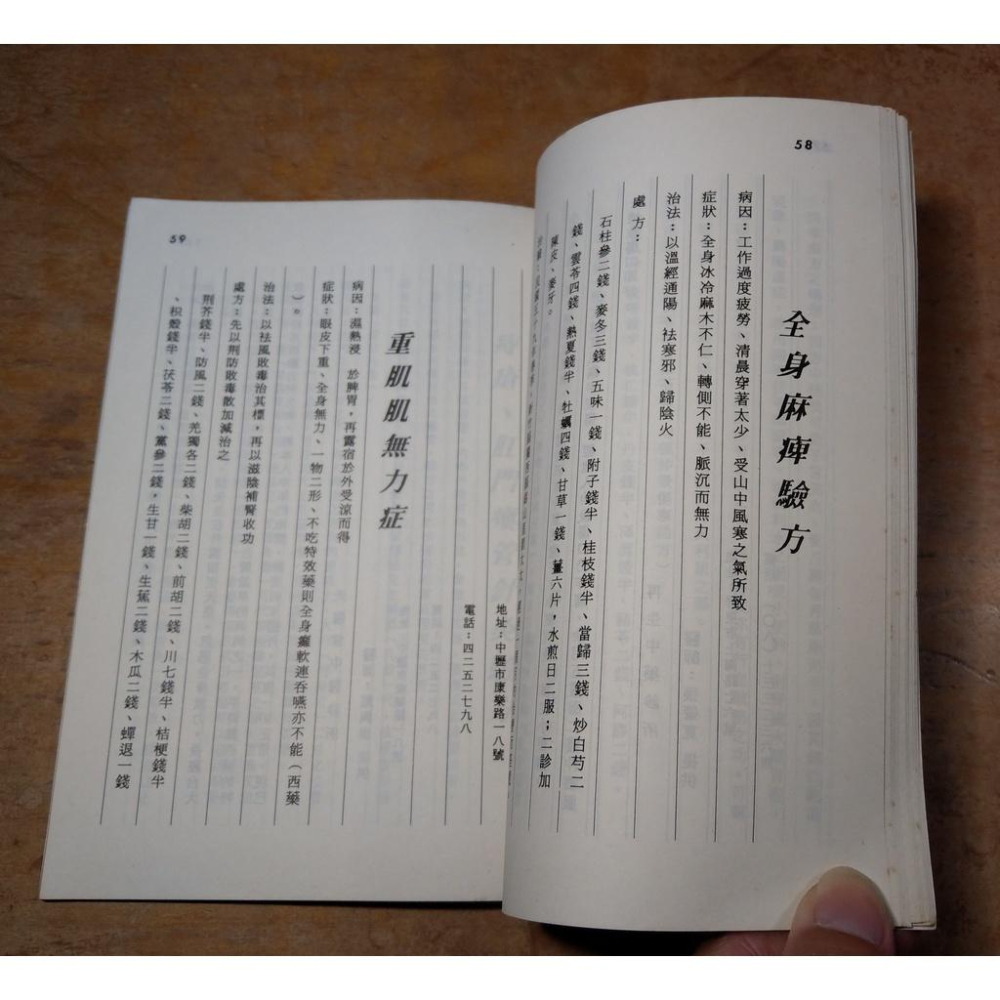 58
全身麻痺驗方
病因：工作過度疲勞、清晨穿著太少、受山中風寒之氣所致
症狀：全身冰冷麻木不仁、轉側不能、脈沉而無力
治法：以溫經通陽、袪寒邪、歸陰火
處方：
石柱參二錢、麥冬三錢、五味一錢、附子錢半、桂枝錢半、當歸三錢、炒白芍二
錢、雲苓四錢、熱夏錢半、牡蠣四錢、甘草一錢、薑六片，水煎日二服；二診加
陳皮、麥芽。
地址：中壢市康樂路一八號
電話：四二五二七九八
59
重肌肌無力症
病因：濕熱浸 於脾胃，再露宿於外受涼而得
症狀：眼皮下重、全身無力、一物二形、不吃特效藥則全身癱軟連吞嚥亦不能（西藥
）。
治法：以袪風敗毒治其標，再以滋陰補腎收功
處方：先以荊防敗毒散加減治之
荊芥錢半、防風二錢、羌獨各二錢、柴胡二錢、前胡二錢、川七錢半、桔梗錢半
、枳殼錢半、茯苓二錢、黨參二錢，生甘一錢、生蕉二錢、木瓜二錢、蟬退一錢